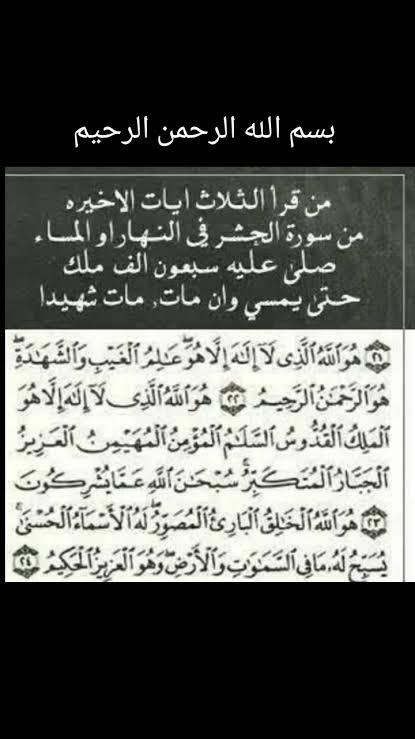 بسم الله الرحمن الرحيم
من قرأ الثلاث ايات الاخيره
من سورة الحشر في النهار او المساء
صلى عليه سبعون الف ملك
حتى يمسي وان مات, مات شهيدا
﴿٢١﴾ هُوَ ٱللَّهُ ٱلَّذِى لَآ إِلَٰهَ إِلَّا هُوَۖ عَٰلِمُ ٱلْغَيْبِ وَٱلشَّهَٰدَةِۖ
هُوَ ٱلرَّحْمَٰنُ ٱلرَّحِيمُ ﴿٢٢﴾ هُوَ ٱللَّهُ ٱلَّذِى لَآ إِلَٰهَ إِلَّا هُوَ
ٱلْمَلِكُ ٱلْقُدُّوسُ ٱلسَّلَٰمُ ٱلْمُؤْمِنُ ٱلْمُهَيْمِنُ ٱلْعَزِيزُ
ٱلْجَبَّارُ ٱلْمُتَكَبِّرُۚ سُبْحَٰنَ ٱللَّهِ عَمَّا يُشْرِكُونَ
﴿٢٣﴾ هُوَ ٱللَّهُ ٱلْخَٰلِقُ ٱلْبَارِئُ ٱلْمُصَوِّرُۖ لَهُ ٱلْأَسْمَآءُ ٱلْحُسْنَىٰۚ
يُسَبِّحُ لَهُۥ مَا فِى ٱلسَّمَٰوَٰتِ وَٱلْأَرْضِۖ وَهُوَ ٱلْعَزِيزُ ٱلْحَكِيمُ ﴿٢٤﴾